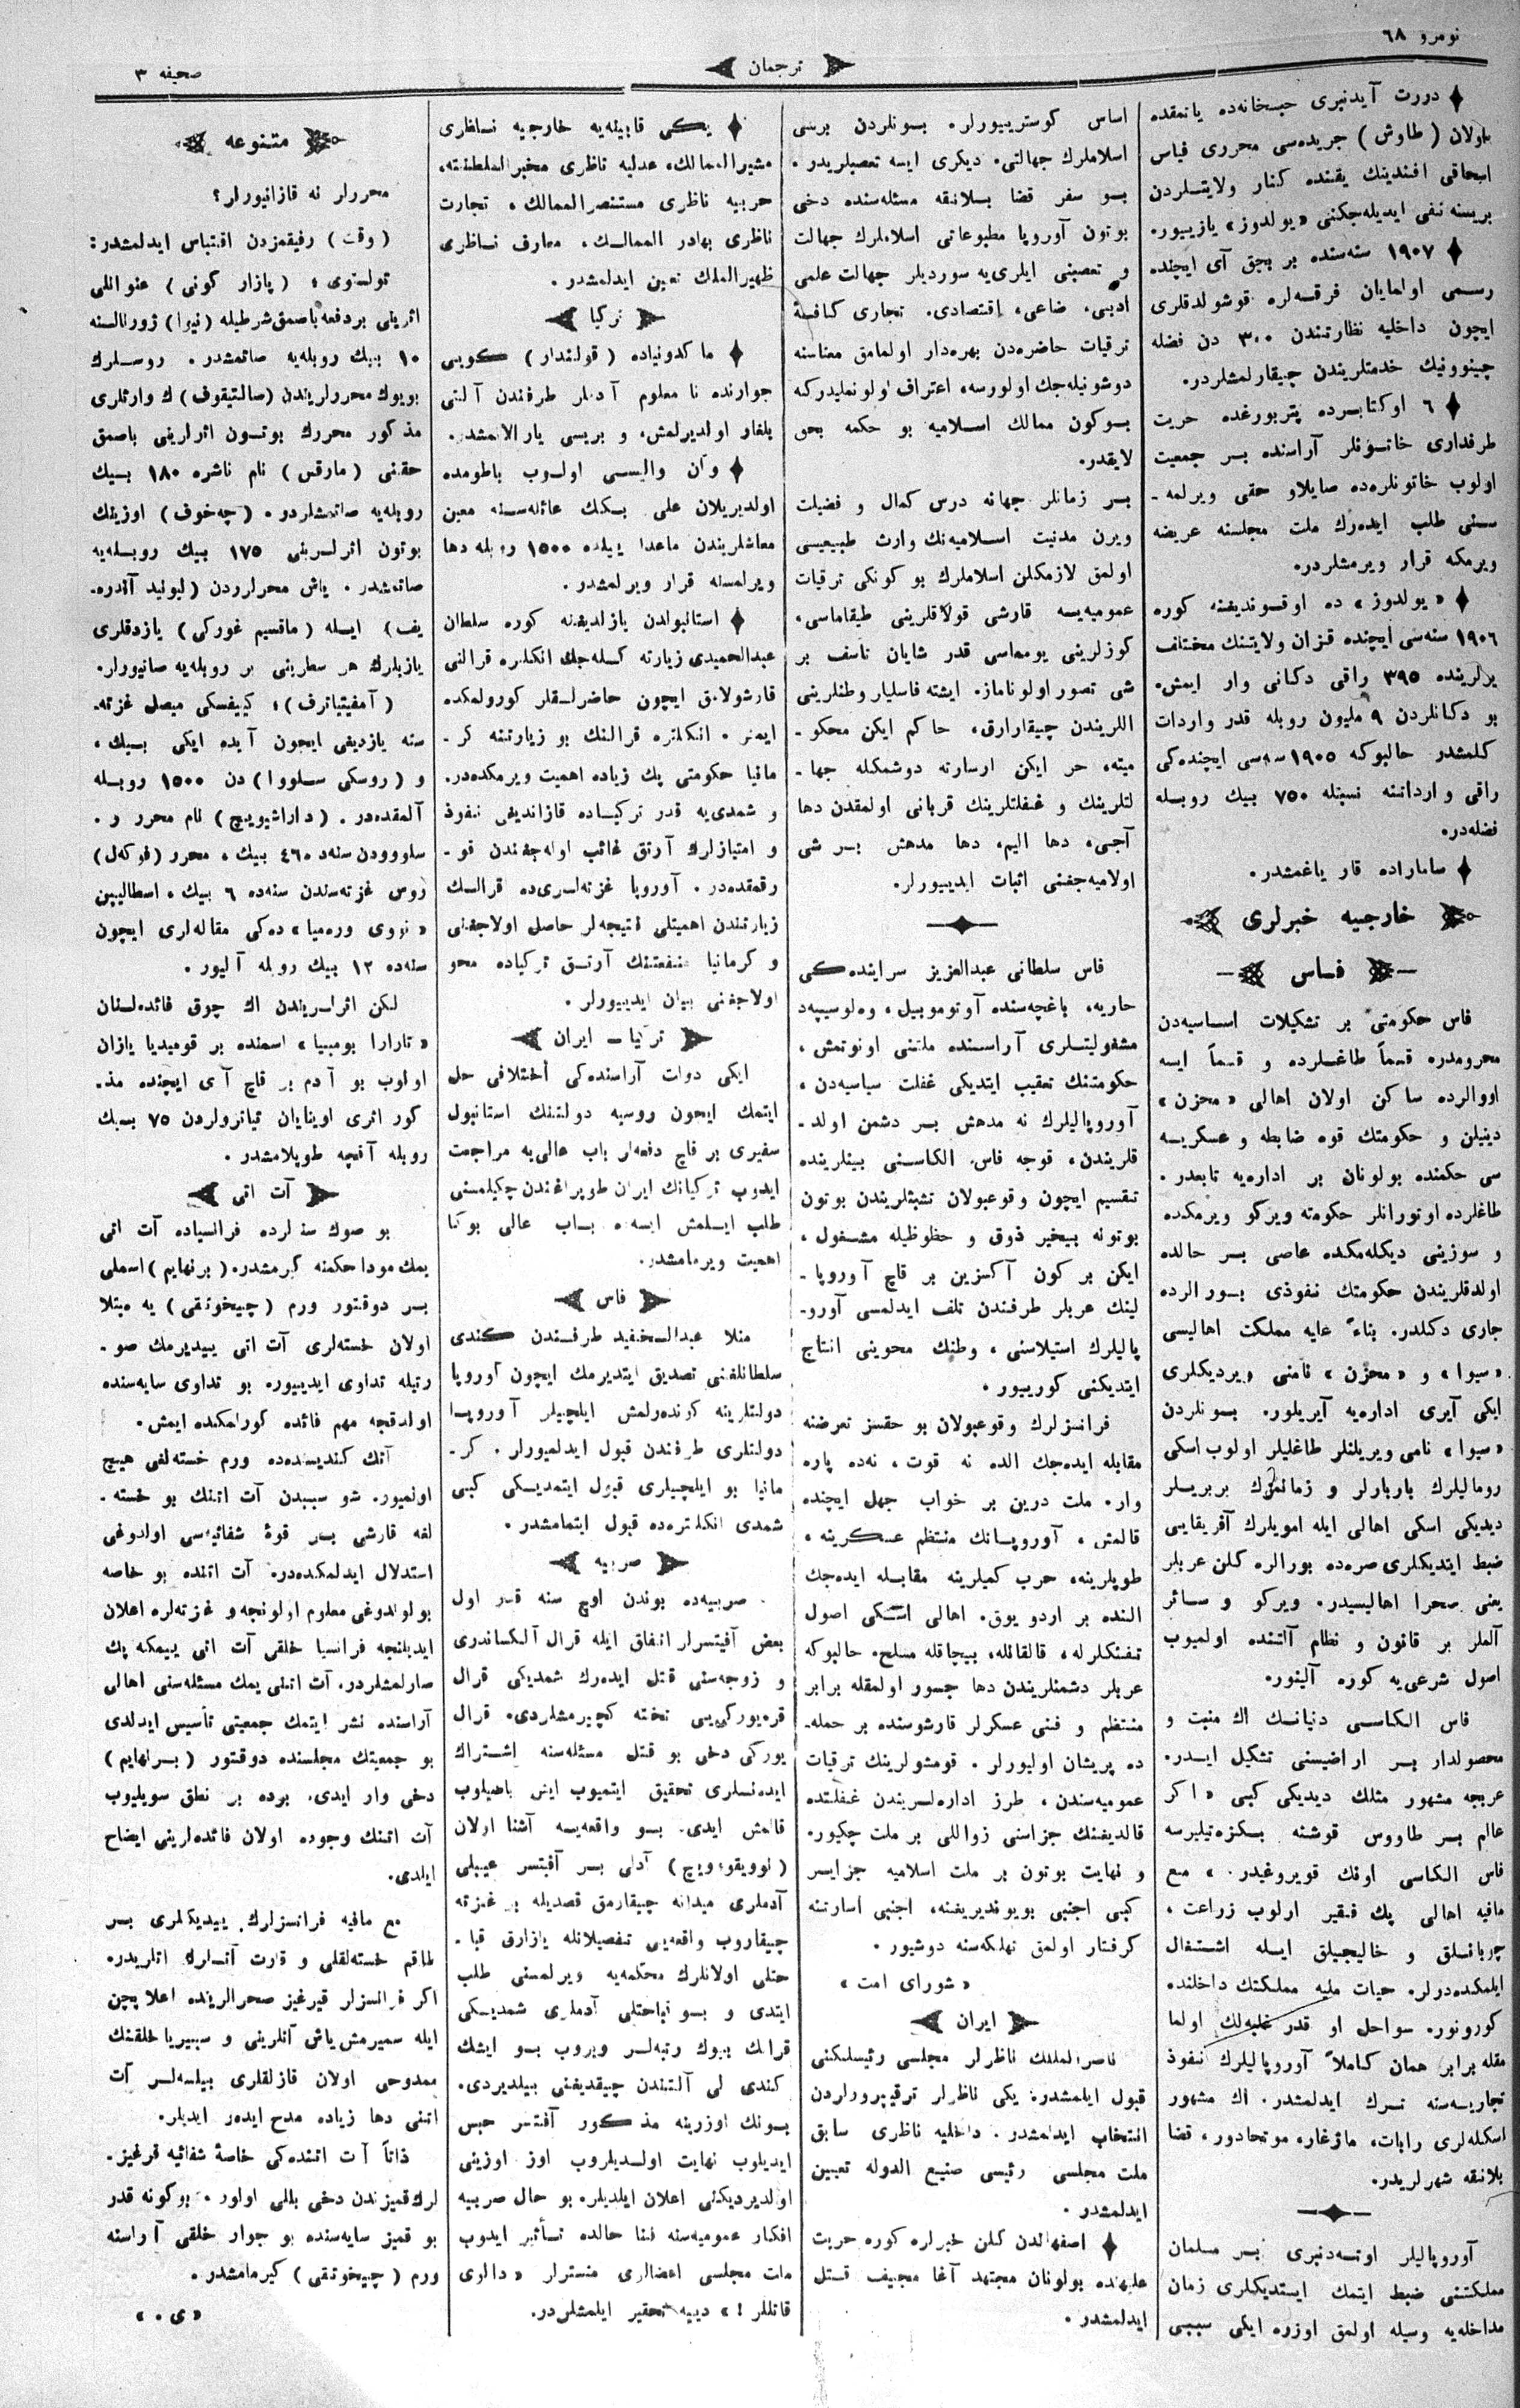 نومرو ٦٨
ترجمان
صحیفه ٣
دورت آیدنبری حبسخانه‌ده یاتمقده
اولان ( طاوش ) جریده‌سی محرری فیاس
اسحاقی افندینك یقینده كنار ولایتلردن
بریسنه نفی ایدیله‌جكنی «یولدوز» یازییور.
١٩٠٧ سنه‌سنده بر بچق آی ایچنده
رسمی اولمایان فرقه‌لره قوشولدقلری
ایچون داخلیه نظارتندن ٣٠٠ دن فضله
چینوونیك خدمتلریندن چیقارلمشلردر.
٦ اوكتابرده پتربورغده حریت
طرفداری خاتونلر آراسنده بر جمعیت
اولوب خاتونلره‌ده صایلاو حقی ویرلمه‌ـ
سنی طلب ایده‌رك ملت مجلسنه عریضه
ویرمكه قرار ویرمشلردر.
«یولدوز» ده اوقوندیغنه كوره
١٩٠٦ سنه‌سی ایچنده قزان ولایتنك مختلف
یرلرینده ٣٩٥ راقی دكانی وار ایمش.
بو دكانلردن ٩ ملیون روبله قدر واردات
كلمشدر حالبوكه ١٩٠٥ سنه‌سی ایچنده‌كی
راقی وارداتنه نسبتله ٧٥٠ بیك روبله
فضله‌در.
ساماراده قار یاغمشدر.
خارجیه خبرلری
فاس
فاس حكومتی بر تشكیلات اساسیه‌دن
محرومدره قسماً طاغلرده و قسماً ایسه
اووالرده ساكن اولان اهالی «مخزن»
دینیلن و حكومتك قوه ضابطه و عسكریه
سی حكمنده بولونان بر اداره‌یه تابعدر.
طاغلرده اوتورانلر حكومته ویركو ویرمكده
و سوزینی دیكله‌مكده عاصی بر حالده
اولدقلریندن حكومتك نفوذی بورالرده
جاری دكلدر. بناءً علیه مملكت اهالیسی
«سیوا» و «مخزن» نامنی ویردیكلری
ایكی آیری اداره‌یه آیریلور. بونلردن
«سیوا» نامی ویریلنلر طاغلیلر اولوب اسكی
رومالیلرك باربارلر و زمانمزك بربریلر
دیدیكی اسكی اهالی ایله امویلرك آفریقایی
ضبط ایتدیكلری صره‌ده بورالره كلن عربلر
یعنی صحرا اهالیسیدر. ویركو و سائر
آلملر بر قانون و نظام آلتنده اولمیوب
اصول شرعی‌یه كوره آلینور.
فاس الكاسی دنیانك اك منبت و
محصولدار بر اراضیسنی تشكیل ایدر.
عربجه مشهور مثلك دیدیكی كبی «اكر
عالم بر طاووس قوشنه بكزه‌تیلیرسه
فاس الكاسی اونك قویروغیدر.» مع
مافیه اهالی پك فقیر اولوب زراعت،
چوبانلق و خالیجیلق ایله اشتغال
ایلمكده‌درلر. حیات ملیه مملكتك داخلنده
كورونور. سواحل او قدر غلبه‌لك اولما
مقله برابر همان كاملاً آوروپالیلرك نفوذ
تجاریه‌سنه ترك ایدلمشدر. اك مشهور
اسكله‌لری رابات، مازغار، موتخادور، قضا
بلانقه شهرلریدر.
آوروپالیلر اوته‌دنبری بر مسلمان
مملكتنی ضبط ایتمك ایستدیكلری زمان
مداخله‌یه وسیله اولمق اوزره ایكی سببی
اساس كوستریبورلر. بونلردن برسی
اسلاملرك جهالتی، دیكری ایسه تعصبلریدر.
بو سفر قضا بلانقه مسئله‌سنده دخی
بوتون آوروپا مطبوعاتی اسلاملرك جهالت
و تعصبنی ایلری‌یه سوردیلر جهالت علمی
ادبی، ضاعی، اقتصادی، تجاری كافهٔ
ترقیات حاضره‌دن بهره‌دار اولمامق معناسنه
دوشونیله‌جك اولورسه، اعتراف اولونملیدركه
بوكون ممالك اسلامیه بو حكمه بحق
لایقدر.
بر زمانلر جهانه درس كمال و فضیلت
ویرن مدنیت اسلامیه‌نك وارث طبیعیسی
اولمق لازمكلن اسلاملرك بو كونكی ترقیات
عمومیه‌یه قارشی قولاقلرینی طیقاماسی،
كوزلرینی یومماسی قدر شایان تاسف بر
شی تصور اولوناماز. ایشته فاسلیلر وطنلرینی
اللریندن چیقارارق، حاكم ایكن محكو‌ـ
میته، حر ایكن اسارته دوشمكله جها‌ـ
لتلرینك و غفلتلرینك قربانی اولمقدن دها
آجی، دها الیم، دها مدهش بر شی
اولامیه‌جغنی اثبات ایدییورلر.
فاس سلطانی عبدالعزیز سراینده‌كی
حاریه، باغچه‌سنده آوتوموبیل، وه‌لوسیپه‌د
مشغولیتلری آراسنده ملتنی اونوتمش،
حكومتنك تعقیب ایتدیكی غفلت سیاسیه‌دن،
آوروپالیلرك نه مدهش بر دشمن اولد‌ـ
قلریندن، قوجه فاس الكاسنی بینلرینده
تقسیم ایچون وقوعبولان تشبثلریندن بوتون
بوتونه بیخبر ذوق و حظوظیله مشغول،
ایكن بر كون آكسزین بر قاچ آوروپا‌ـ
لینك عربلر طرفندن تلف ایدلمسی آورو‌ـ
پالیلرك استیلاسنی، وطنك محوینی انتاج
ایتدیكنی كورییور.
فرانسزلرك وقوعبولان بو حقسز تعرضنه
مقابله ایده‌جك الده نه قوت، نه‌ده پاره
وار. ملت درین بر خواب جهل ایچنده
قالمش، آوروپانك منتظم عسكرینه،
طوپلرینه، حرب كمیلرینه مقابله ایده‌جك
النده بر اردو یوق. اهالی اسكی اصول
تفنكلرله، قالقانله، بیچاقله مسلح. حالبوكه
عربلر دشمنلریندن دها جسور اولمقله برابر
منتظم و فنی عسكرلر قارشوسنده بر حمله‌ـ
ده پریشان اولیورلر. قومشولرینك ترقیات
عمومیه‌سندن، طرز اداره‌لریندن غفلتده
قالدیغنك جزاسنی زواللی بر ملت چكیور.
و نهایت بوتون بر ملت اسلامیه جزایر
كبی اجنبی بویوندیریغنه، اجنبی اسارتنه
كرفتار اولمق تهلكه‌سنه دوشیور.
«شورای امت»
ایران
ناصرالملك ناظرلر مجلسی رئیسلكنی
قبول ایلمشدر. یكی ناظرلر ترقیپرورلردن
انتخاب ایدلمشدر. داخلیه ناظری سابق
ملت مجلسی رئیسی صنیع الدوله تعیین
ایدلمشدر.
اصفهاندن كلن خبرلره كوره حریت
علیهنده بولونان مجتهد آغا مجیف قتل
ایدلمشدر.
یكی قابینه‌یه خارجیه ناظری
مشیرالممالك، عدلیه ناظری مخبرالسلطنه،
حربیه ناظری مستنصرالممالك، تجارت
ناظری بهادر الممالك، معارف ناظری
ظهیرالملك تعین ایدلمشدر.
تركیا
ماكدونیاده ( قولندار ) كویی
جوارنده نا معلوم آدملر طرفندن آلتی
بلغار اولدیرلمش، و بریسی یارالانمشدر.
وان والیسی اولوب باطومده
اولدیریلان علی بكك عائله‌سنه معین
معاشلریندن ماعدا ییلده ١٥٠٠ روبله دها
ویرلمسنه قرار ویرلمشدر.
استانبولدن یازلدیغنه كوره سلطان
عبدالحمیدی زیارته كله‌جك انكلتره قرالنی
قارشولامق ایچون حاضرلقلر كورولمكده
ایمش. انكلتره قرالنك بو زیارتنه كر‌ـ
مانیا حكومتی پك زیاده اهمیت ویرمكده‌در.
و شمدی‌یه قدر تركیاده قازاندیغی نفوذ
و امتیازلرك آرتق غائب اوله‌جغندن قو‌ـ
رقمقده‌در. آوروپا غزته‌لری‌ده قرالك
زیارتندن اهمیتلی نتیجه‌لر حاصل اولاجغنی
و كرمانیا منفعتنك آرتق تركیاده محو
اولاجغنی بیان ایدییورلر.
تركیا ـ ایران
ایكی دولت آراسنده‌كی اختلافی حل
ایتمك ایچون روسیه دولتنك استانبول
سفیری بر قاچ دفعه‌لر باب عالی‌یه مراجعت
ایدوب تركیانك ایران طوپراغندن چكیلمسنی
طلب ایلمش ایسه‌ده باب عالی بوكا
اهمیت ویرمامشدر.
فاس
منلا عبدالحفید طرفندن كندی
سلطانلغنی تصدیق ایتدیرمك ایچون آوروپا
دولتلرینه كونده‌رلمش ایلچیلر آوروپا
دولتلری طرفندن قبول ایدلمیورلر. كر‌ـ
مانیا بو ایلچیلری قبول ایتمدیكی كبی
شمدی انكلتره‌ده قبول ایتمامشدر.
صربیه
صربیه‌ده بوندن اوچ سنه قدر اول
بعض آفیتسرلر اتفاق ایله قرال آلكساندری
و زوجه‌سنی قتل ایده‌رك شمدیكی قرال
قره‌یوركی‌یی تخته كچیرمشلردی. قرال
یوركی دخی بو قتل مسئله‌سنه اشتراك
ایده‌نلری تحقیق ایتمیوب ایش باصیلوب
قالمش ایدی. بو واقعه‌یه آشنا اولان
آدلی بر آفیتسر عیبلی
آدملری میدانه چیقارمق قصدیله بر غزته
چیقاروب واقعه‌یی تفصیلاتله یازارق قبا‌ـ
حتلی اولانلرك محكمه‌یه ویرلمسنی طلب
ایتدی و بو قباحتلی آدملری شمدیكی
قرالك بیوك رتبه‌لر ویروب بو ایشك
كندی لی آلتندن چیقدیغنی بیلدیردی.
بونك اوزرینه مذكور آفتسر حبس
ایدیلوب نهایت اولدیلروب اوز اوزینی
اولدیردیكنی اعلان ایلدیلر. بو حال صربیه
افكار عمومیه‌سنه فنا حالده تأثیر ایدوب
ملت مجلسی اعضالری منسترلر
قاتللر!» دییه تحقیر ایلمشلردر.
متنوعه
محررلر نه قازانیورلر؟
( وقت ) رفیقمزدن اقتباس ایدلمشدر:
تولستوی؛ ( پازار كونی ) عنوانلی
اثرینی بر دفعه باصمق شرطیله (نیوا) ژورنالنه
١٠ بیك روبله‌یه صاتمشدر. روسلرك
بویوك محررلریندن (صالتیقوف) ك وارثلری
مذكور محررك بوتون اثرلرینی باصمق
حقنی ( مارقس ) نام ناشره ١٨٠ بیك
روبله‌یه صاتمشلردر. ( چه‌خوف ) اوزینك
بوتون اثرلرینی ١٧٥ بیك روبله‌یه
صاتمشدر. یاش محررلردن (لیونید آندره‌ـ
یف) ایله (ماقسیم غوركی) یازدقلری
یازیلرك هر سطرینی بر روبله‌یه صاتیورلر.
( آمفیتیاترف )؛ كییفسكی میصل غزته‌ـ
سنه یازدیغی ایچون آیده ایكی بیك،
و (روسكی سلووا) دن ١٥٠٠ روبله
آلمقده‌در. ( داراشیویچ ) نام محرر ر.
سلوودن سنه‌ده ٤٦٠ بیك، محرر
روس غزته‌سندن سنه‌ده ٦ بیك، اسطالیپن
«نووی وره‌میا» ده‌كی مقاله‌لری ایچون
سنه‌ده ١٢ بیك روبله آلیور.
لكن اثرلریندن اك چوق فائده‌لنان
«تارارا بومبیا» اسمنده بر قومیدیا یازان
اولوب بو آدم بر قاچ آی ایچنده مذ‌ـ
كور اثری اوینایان تیاترولردن ٧٥ بیك
روبله آقچه طوپلامشدر.
آت اتی
بو صوك سنه‌لرده فرانسیاده آت اتی
یمك مودا حكمنه كیرمشدر. (برنهایم) اسملی
بر دوقتور ورم (چیخوتقی) یه مبتلا
اولان خسته‌لری آت اتی ییدیرمك صو‌ـ
رتیله تداوی ایدییور. بو تداوی سایه‌سنده
اولدقجه مهم فائده كورلمكده ایمش.
آتك كندیسنده‌ده ورم خسته‌لغی هیچ
اولمیور. شو سببدن آت اتنك بو خسته‌ـ
لغه قارشی بر قوهٔ شفائیه‌سی اولدوغی
استدلال ایدلمكده‌در. آت اتنده بو خاصه
بولوندوغی معلوم اولونجه و غزته‌لره اعلان
ایدیلنجه فرانسیا خلقی آت اتی ییمكه پك
صارلمشلردر. آت اتنی یمك مسئله‌سنی اهالی
آراسنده نشر ایتمك جمعیتی تأسیس ایدلدی
بو جمعیتك مجلسنده دوقتور ( برنهایم )
دخی وار ایدی. بوده بر نطق سویلیوب
آت اتینك وجوده اولان فائده‌لرینی ایضاح
ایلدی.
مع مافیه فرانسزلرك ییدیكلری بر
طاقم خسته‌لقلی و قارت آتلرك اتلریدر.
اكر فرانسزلر قیرغیز صحرالرنده اعلا
ایله سمیرمش یاش آتلرینی و سیبیریا خلقنك
ممدوحی اولان قازلقلری بیلسه‌لر آت
اتنی دها زیاده مدح ایده‌ر ایدیلر.
ذاتاً آت اتنده‌كی خاصهٔ شفائیه قرغیز‌ـ
لرك قمیزندن دخی بللی اولور. بو كونه قدر
بو قمیز سایه‌سنده بو جوار خلقی آراسنه
ورم ( چیخوتقی ) كیرمامشدر.
«ی.»